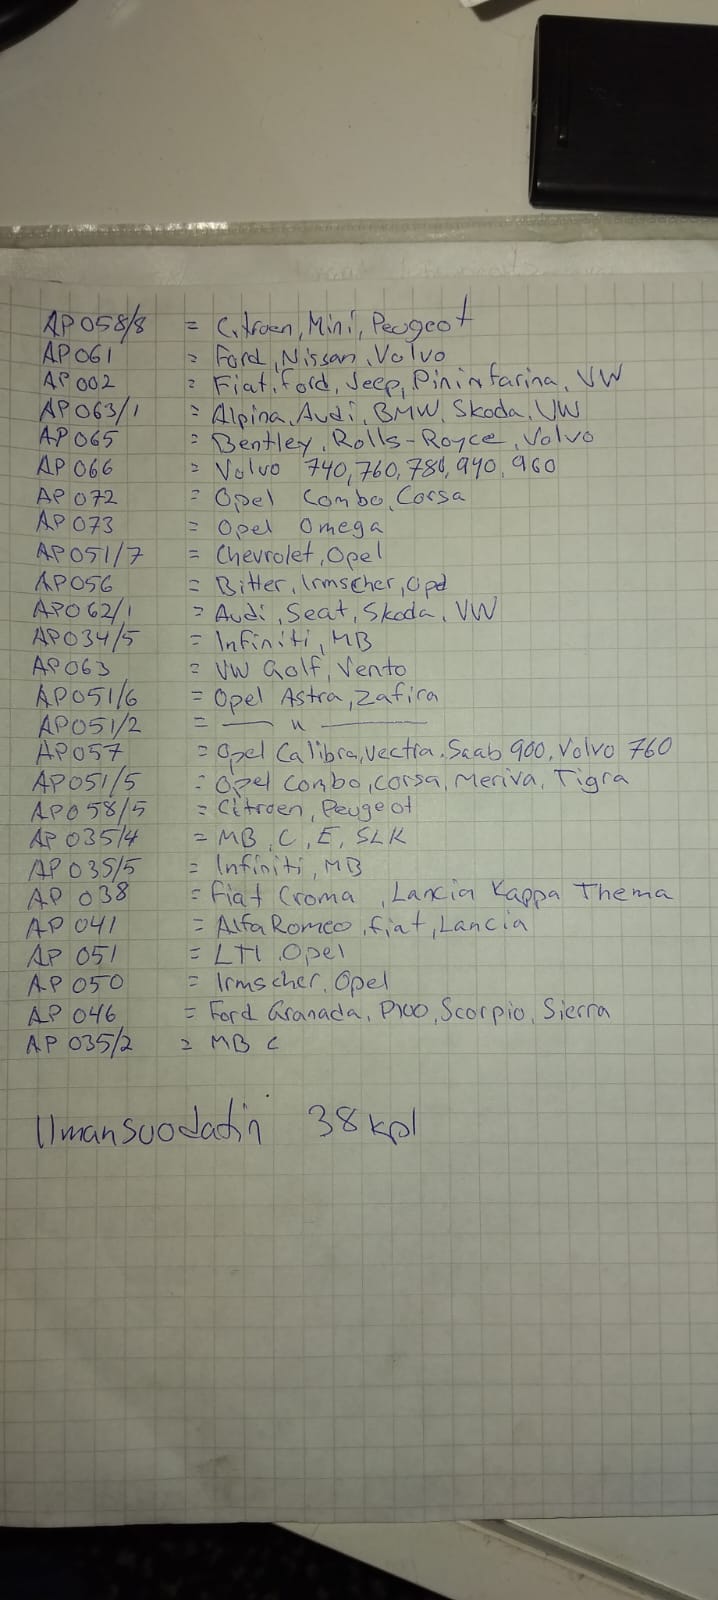 AP058/8 = Citroen, Mini, Peugeot
AP061 = Ford, Nissan, Volvo
AP002 = Fiat, Ford, Jeep, Pininfarina, VW
AP063/1 = Alpina, Audi, BMW, Skoda, VW
AP065 = Bentley, Rolls-Royce, Volvo
AP066 = Volvo 740, 760, 780, 940, 960
AP072 = Opel Combo, Corsa
AP073 = Opel Omega
AP051/7 = Chevrolet, Opel
AP056 = Bitter, Irmscher, Opel
AP062/1 = Audi, Seat, Skoda, VW
AP034/5 = Infiniti, MB
AP063 = VW Golf, Vento
AP051/6 = Opel Astra, Zafira
AP051/2 = — " —
AP057 = Opel Calibra, Vectra. Saab 900, Volvo 760
AP051/5 = Opel Combo, Corsa, Meriva, Tigra
AP058/5 = Citroen, Peugeot
AP 035/4 = MB, C, E, SLK
AP 035/5 = Infiniti, MB
AP 038 = Fiat Croma, Lancia Kappa Thema
AP 041 = Alfa Romeo, Fiat, Lancia
AP 051 = LTI, Opel
AP 050 = Irmscher, Opel
AP 046 = Ford Granada, P100, Scorpio, Sierra
AP 035/2 = MB C
Ilmansuodatin 38 kpl